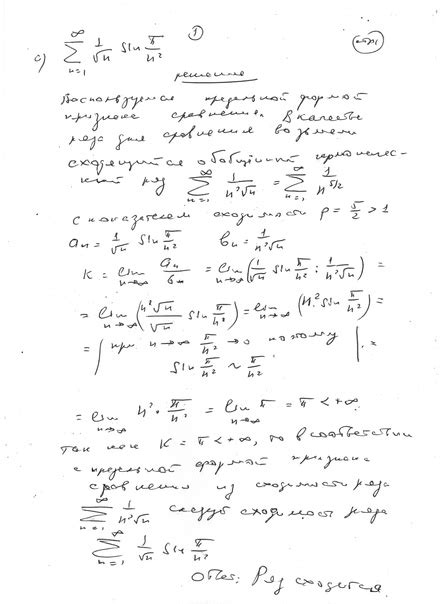 ①
с) \sum_{n=1}^{\infty} \frac{1}{\sqrt{n}} \sin \frac{\pi}{n^2}
решение
Воспользуемся предельной формой
признака сравнения. В качестве
ряда для сравнения возьмем
сходящийся обобщенный гармоничес-
кий ряд \sum_{n=1}^{\infty} \frac{1}{n^2\sqrt{n}} = \sum_{n=1}^{\infty} \frac{1}{n^{5/2}}
с показателем сходимости p = \frac{5}{2} > 1
a_n = \frac{1}{\sqrt{n}} \sin \frac{\pi}{n^2} b_n = \frac{1}{n^2\sqrt{n}}
K = \lim_{n\to\infty} \frac{a_n}{b_n} = \lim_{n\to\infty} \left( \frac{1}{\sqrt{n}} \sin \frac{\pi}{n^2} : \frac{1}{n^2\sqrt{n}} \right) =
= \lim_{n\to\infty} \left( \frac{n^2\sqrt{n}}{\sqrt{n}} \sin \frac{\pi}{n^2} \right) = \lim_{n\to\infty} \left( n^2 \cdot \sin \frac{\pi}{n^2} \right) =
= | при n\to\infty \frac{\pi}{n^2} \to 0 поэтому | =
\sin \frac{\pi}{n^2} \sim \frac{\pi}{n^2}
= \lim_{n\to\infty} n^2 \cdot \frac{\pi}{n^2} = \lim_{n\to\infty} \pi = \pi < +\infty
Так как K = \pi < +\infty, то в соответствии
с предельной формой признака
сравнения из сходимости ряда
\sum_{n=1}^{\infty} \frac{1}{n^2\sqrt{n}} следует сходимость ряда
\sum_{n=1}^{\infty} \frac{1}{\sqrt{n}} \sin \frac{\pi}{n^2}
Ответ: Ряд сходится.